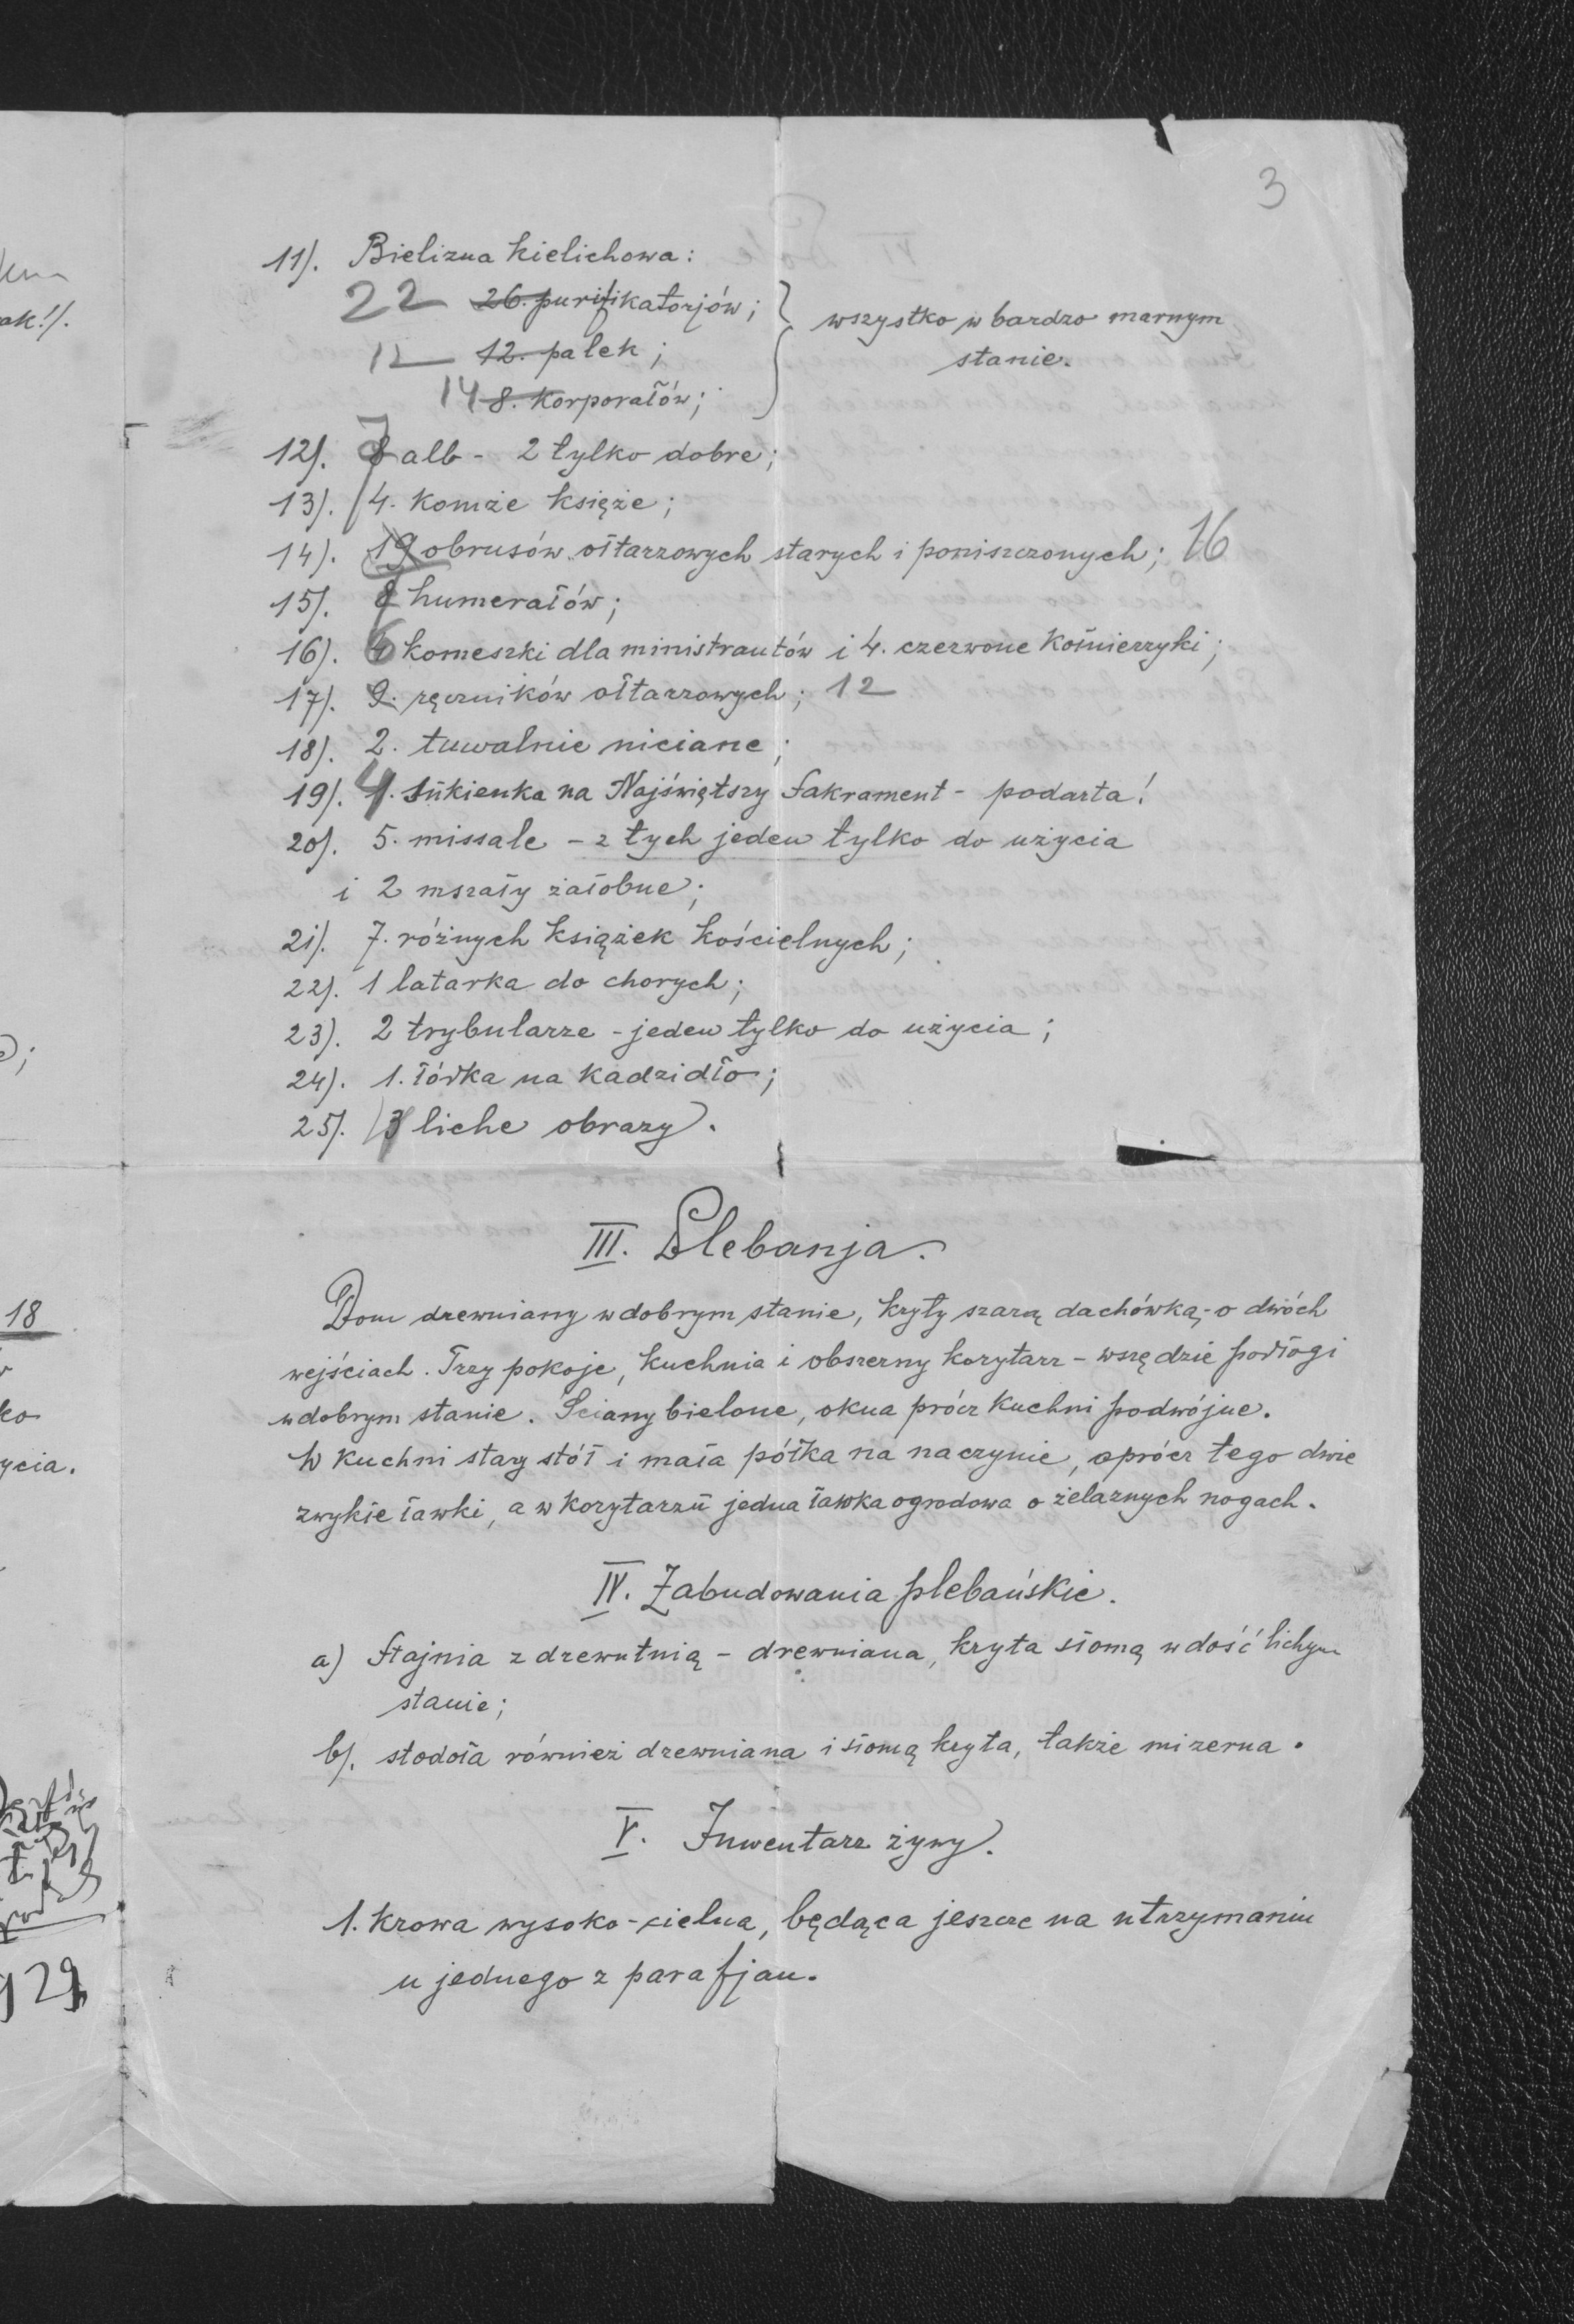 3
11). Bielizna kielichowa:
22 26. purifikatorjów;
12 12. palek;
14 8. korporałów;
wszystko w bardzo marnym
stanie.
12). 7 8 alb - 2 tylko dobre;
13). 4. komże księże;
14). 19 obrusów ołtarzowych starych i poniszczonych; 16
15). 8 humerałów;
16). 6 komeszki dla ministrantów i 4. czerwone kołnierzyki;
17). 9. ręczników ołtarzowych; 12
18). 2. tuwalnie niciane;
19). 4 1. sukienka na Najświętszy Sakrament - podarta!
20). 5. missale - z tych jeden tylko do użycia
i 2 mszały żałobne;
21). 7. różnych książek kościelnych;
22). 1 latarka do chorych;
23). 2 trybularze - jeden tylko do użycia;
24). 1. łódka na kadzidło;
25). 3 liche obrazy.
III. Plebanja.
Dom drewniany w dobrym stanie, kryty szarą dachówką, - o dwóch
wejściach. Trzy pokoje, kuchnia i obszerny korytarz - wszędzie podłogi
w dobrym stanie. Ściany bielone, okna prócz kuchni podwójne.
W kuchni stary stół i mała półka na naczynie, oprócz tego dwie
zwykłe ławki, a w korytarzu jedna ławka ogrodowa o żelaznych nogach.
IV. Zabudowania plebańskie.
a) Stajnia z drewutnią - drewniana, kryta słomą w dość lichym
stanie;
b). stodoła również drewniana i słomą kryta, także mizerna.
V. Inwentarz żywy.
1. krowa wysoko-cielna, będąca jeszcze na utrzymaniu
u jednego z parafjan.
ak!).
18
ko
ycia.
929